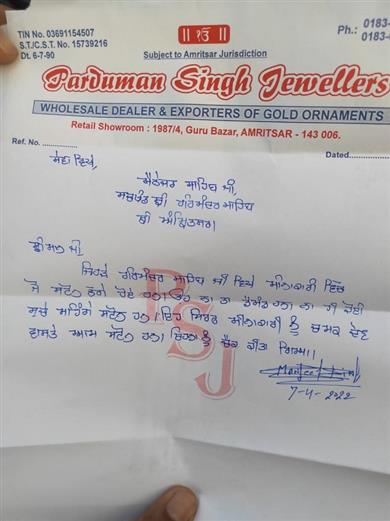 TIN No. 03691154507
S.T./C.ST. No. 15739216
Dt. 6-7-90
॥ ੴ ॥
Ph.: 0183-
0183-
Subject to Amritsar Jurisdiction
Parduman Singh Jewellers
WHOLESALE DEALER & EXPORTERS OF GOLD ORNAMENTS
Retail Showroom : 1987/4, Guru Bazar, AMRITSAR - 143 006.
Ref. No. ..............
Dated..............
ਸੇਵਾ ਵਿਖੇ,
ਮੈਨੇਜਰ ਸਾਹਿਬ ਜੀ,
ਸਚਖੰਡ ਸ੍ਰੀ ਹਰਿਮੰਦਰ ਸਾਹਿਬ
ਸ੍ਰੀ ਅੰਮ੍ਰਿਤਸਰ।
ਸ੍ਰੀਮਾਨ ਜੀ,
ਜਿਹੜੇ ਹਰਿਮੰਦਰ ਸਾਹਿਬ ਜੀ ਵਿਖੇ ਮੀਨਾਕਾਰੀ ਵਿਚ
ਜੋ ਸਟੋਨ ਲਗੇ ਹੋਏ ਹਨ। ਇਹ ਨਾ ਤਾਂ ਡੈਮੰਡ ਹਨ। ਨਾ ਹੀ ਕੋਈ
ਸੁਚੇ ਮਹਿੰਗੇ ਸਟੋਨ ਹਨ। ਇਹ ਸਿਰਫ ਮੀਨਾਕਾਰੀ ਨੂੰ ਚਮਕ ਦੇਣ
ਵਾਸਤੇ ਆਮ ਸਟੋਨ ਹਨ। ਇਹਨਾਂ ਨੂੰ ਚੈਕ ਕੀਤਾ ਗਿਆ।
PSJ
7-4-2022